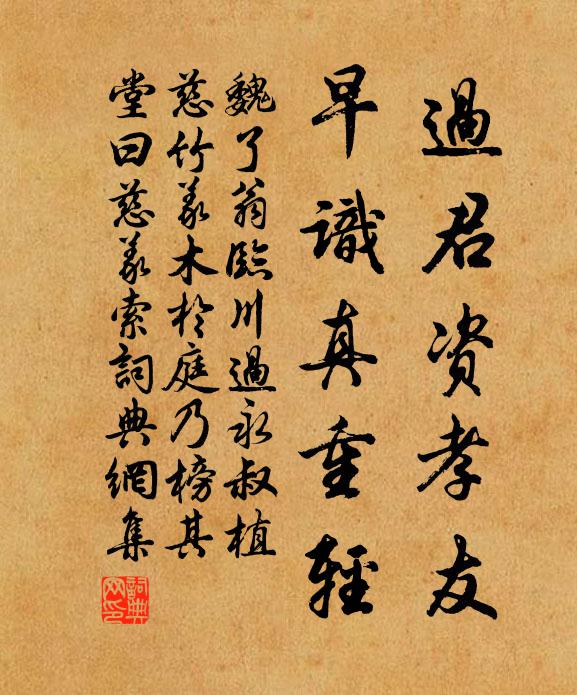 過君資孝友
早識真重輕
魏了翁臨川過永叔植
慈竹義木於庭乃榜其
堂曰慈義索詞典網集
詞典网印